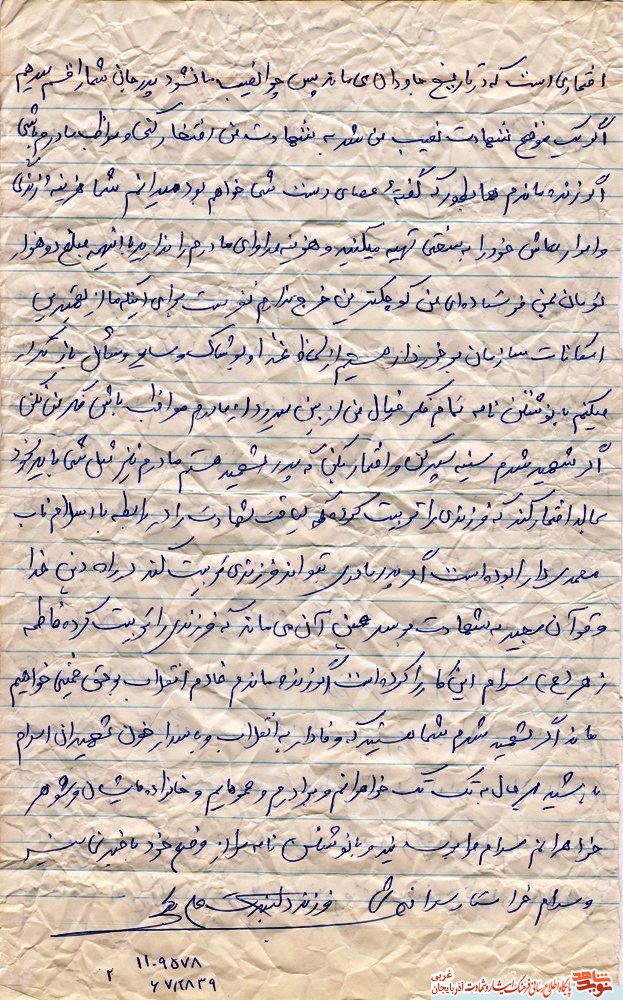 افتخاری است که در تاریخ جاودان می ماند پس چرا نصیب ما نشود پدر جان شما را قسم میدهم
اگر یک موقع شهادت نصیب من شد به شهادت من افتخار کنی و مواظب مادرم باشی
اگر زنده ماندم همانطور که گفتهٔ عصای دست شما خواهم بود میدانم شما هزینه زندگی
و امرار معاش خود را به سختی تهیه میکنید و هزینه مداوای مادرم را ندارید با اینهمه مبلغ دو هزار
تومان بمن فرستاده‌ای من کوچکترین خرجی ندارم نفرست برای اینکه ما از بهترین
امکانات سازمان برخوردار هستیم از لحاظ غذا و پوشاک و سایر وسائل باز تکرار
میکنم با نوشتن نامه تمام فکر خیال من از بین میرود از مادرم مواظب باشی فکر من نکن
اگر شهید شدم سینه سپر کن و افتخار بکن که پدر شهید هستم مادرم نیز مثل شما باید بخود
ببالد افتخار کند که فرزندی را تربیت کرده که لیاقت شهادت را در رابطه با اسلام ناب
محمدی دارا بوده است اگر پدر مادری بتواند فرزندی تربیت کند در راه دین خدا
و قرآن مجید به شهادت برسد عین آن می ماند که فرزندی را تربیت کرده فاطمه
زهرا (س) سلام این کار را کرده است اگر زنده ماندم خادم انقلاب و حتی خمینی خواهیم
ماند اگر شهید شدم شما هستید که وفادار به انقلاب و پاسدار خون شهیدان اسلام
باشید بهر حال به تک تک خواهرانم و برادرم و عموهایم و خانواده هایشان و شوهر
خواهرانم سلام مرا برسانید و با نوشتن نامه مرا از وضع خود با خبر نمائید
والسلام خدا نگهدار فرزند دلبندت علی
۱۱۰۹۵۷۸
۶۷/۸/۳۹
۲
شاهد
نوید
پایگاه اطلاع رسانی فرهنگ ایثار و شهادت آذربایجان غربی